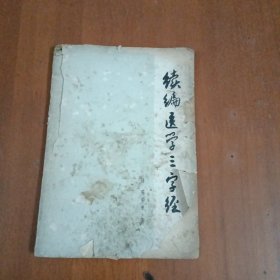 续编医学三字经